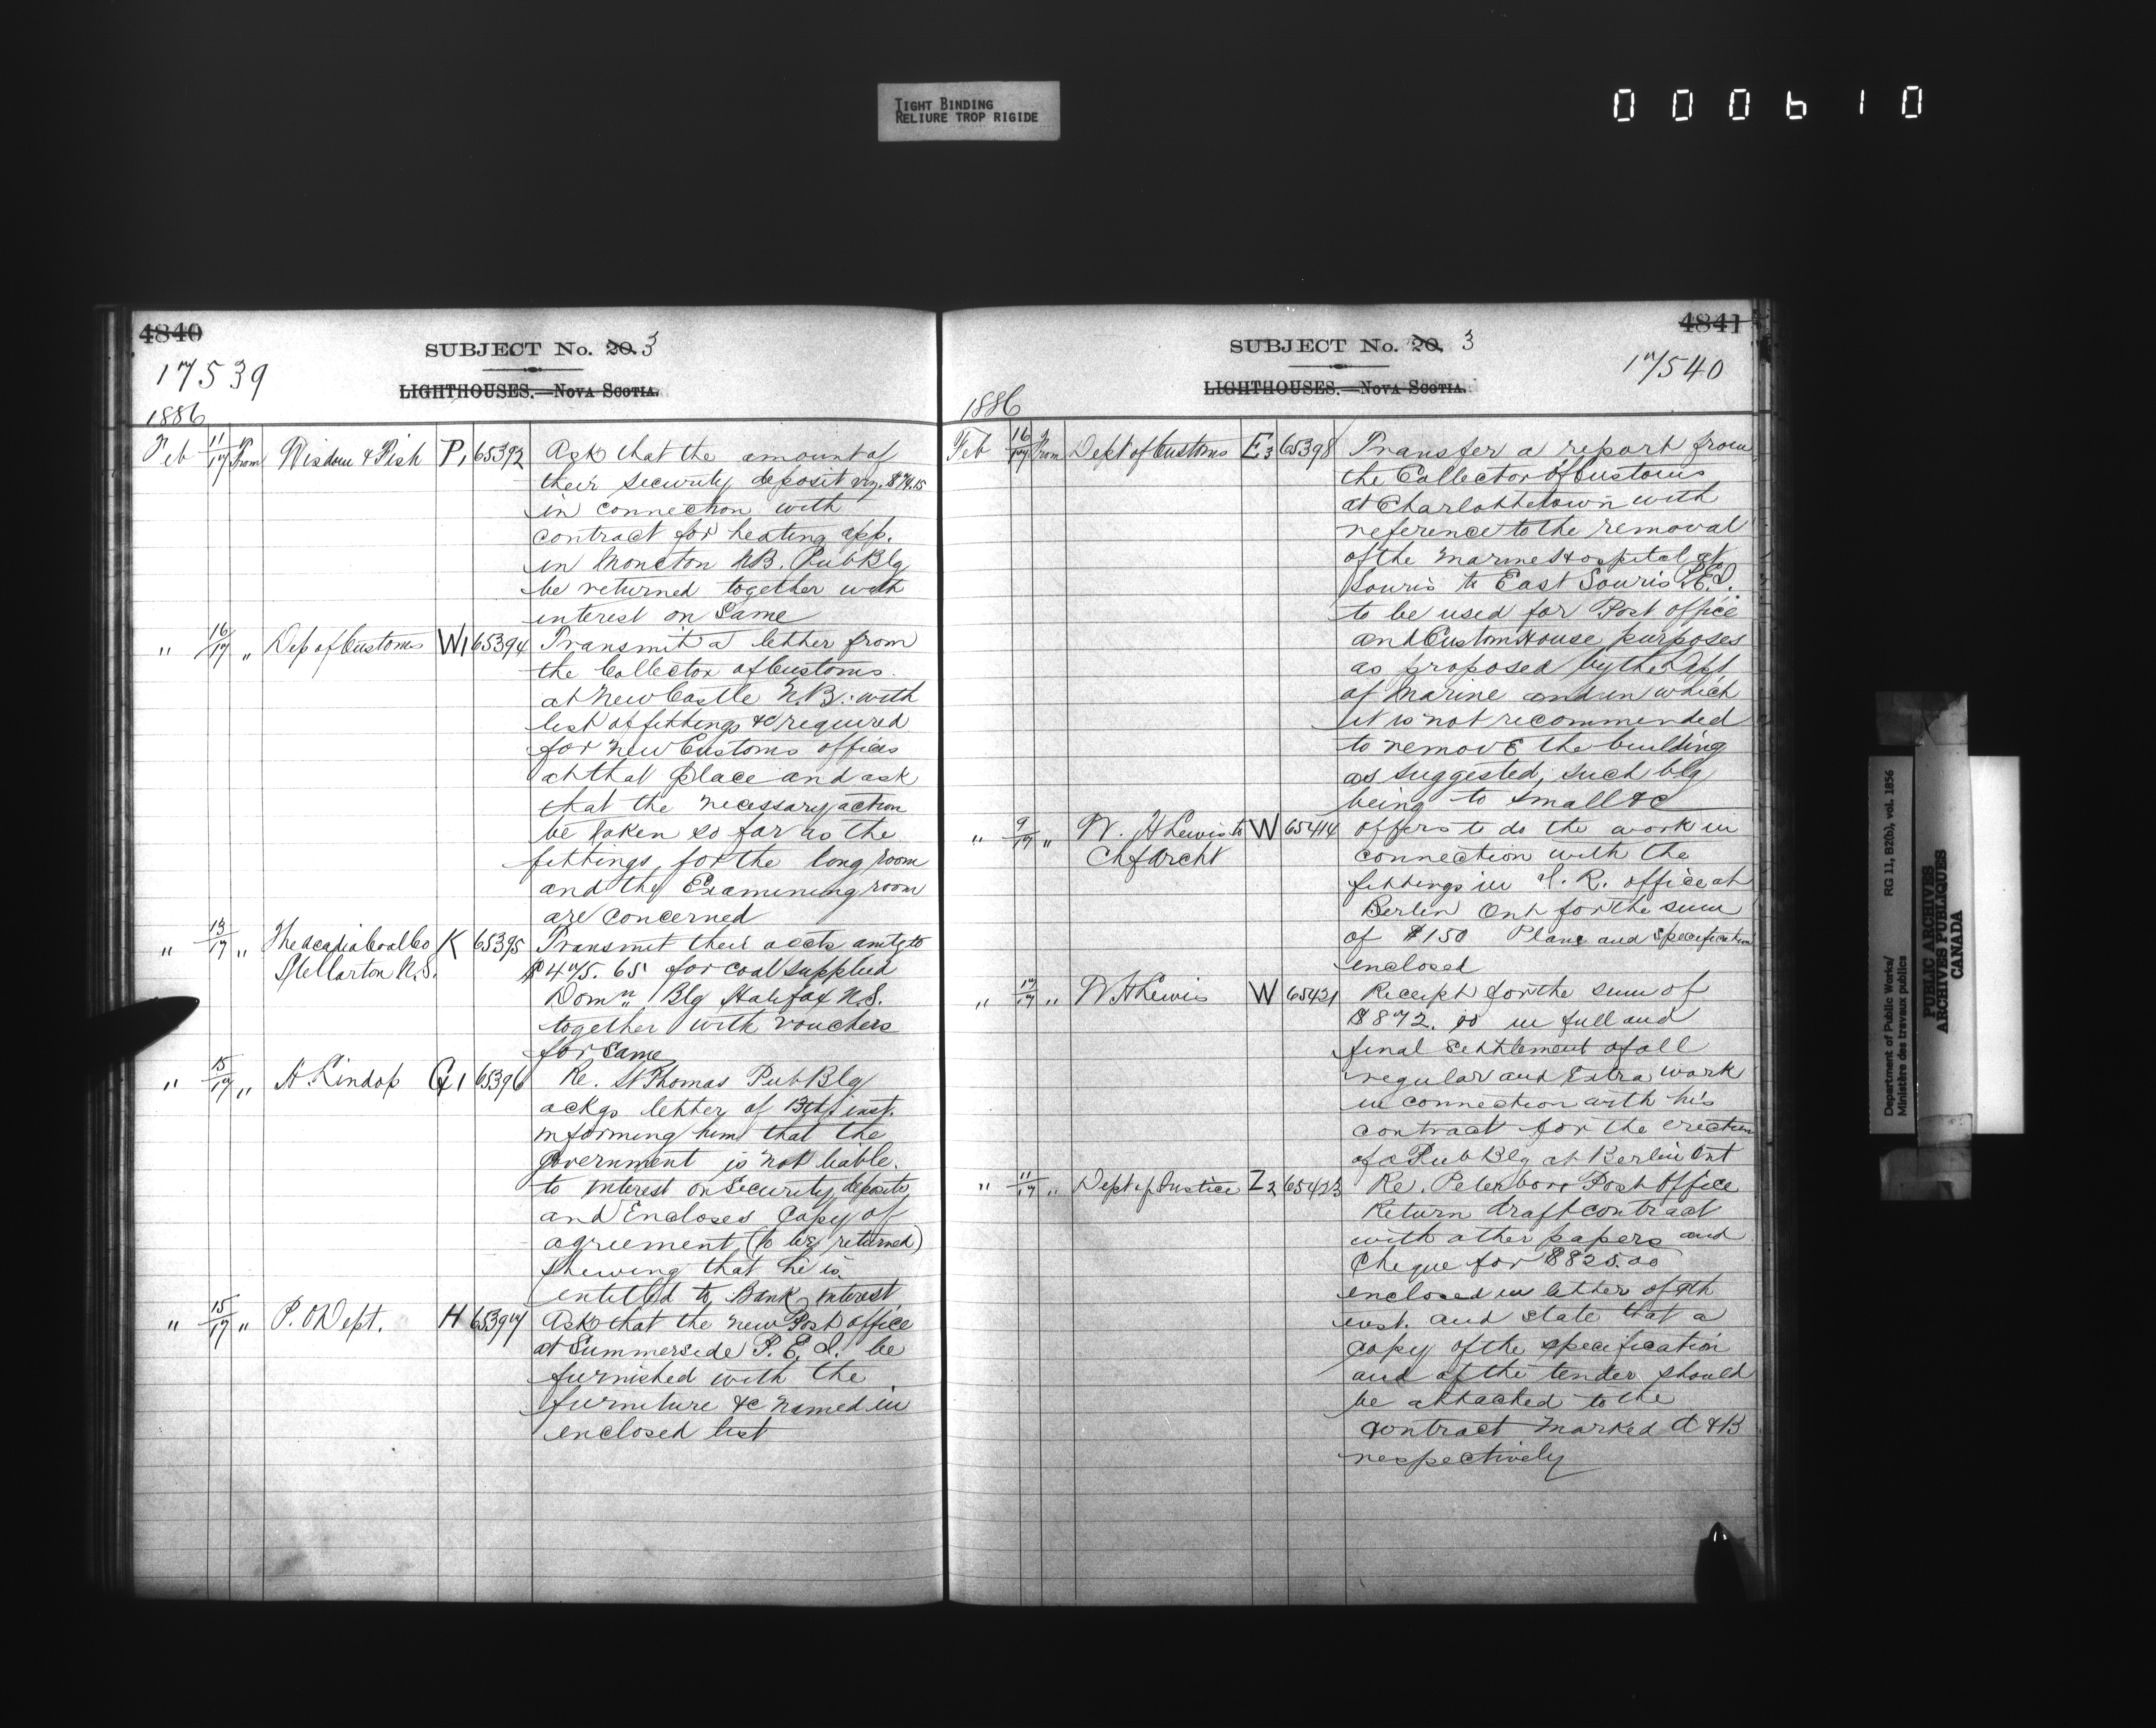 TIGHT BINDING
RELIURE TROP RIGIDE
000610
4840
SUBJECT No. 20. 3
17539
LIGHTHOUSES.—NOVA SCOTIA.
1886
Feb 11/17 From Wisdom & Fish P1 65392 Ask that the amount of
their security deposit viz.
in connection with
contract for heating app.
in Moncton NB. Pub Blg
be returned together with
interest on Same
" 16/17 " Dep of Customs W1 65394 Transmit a letter from
the Collector of Customs
at New Castle N.B. with
list of fittings &c required
for new Customs offices
at that place and ask
that the necessary action
be taken so far as the
fittings for the long room
and the Examining room
are concerned
" 13/17 " The Acadia Coal Co K 65395 Transmit their accts amtg to
Stellarton N.S. $475.65 for coal supplied
Domn Blg Halifax N.S.
together with vouchers
for same
" 15/17 " A Lindop G1 65396 Re. St Thomas Pub Blg
ackgs letter of 13th inst.
informing him that the
government is not liable
to interest on Security deposits
and Encloses Copy of
agreement (to be returned)
shewing that he is
entitled to Bank interest
" 15/17 " P. O Dept. H 65397 Asks that the new Post office
at Summerside P. E. I. be
furnished with the
furniture &c named in
enclosed list
4841
SUBJECT No. 20. 3
17540
LIGHTHOUSES.—NOVA SCOTIA.
1886
Feb 16/17 From Dept of Customs E3 65398 Transfer a report from
the Collector of Customs
at Charlottetown with
reference to the removal
of the Marine Hospital at
Souris to East Souris P.E.I.
to be used for Post office
and Custom House purposes
as proposed by the Dept
of Marine and in which
it is not recommended
to remove the building
as suggested, such blg
being to small &c
" 9/17 " W. H Lewis to W 65414 offers to do the work in
Chf Archt connection with the
fittings in I. R. office at
Berlin Ont for the sum
of $150 Plans and Specification
enclosed
" 17/17 " W H Lewis W 65421 Receipt for the sum of
$872.00 in full and
final settlement of all
regular and Extra work
in connection with his
contract for the erection
of a Pub Blg at Berlin Ont
" 11/17 " Dept of Justice Z2 65423 Re. Peterboro Post Office
Return draft contract
with other papers and
Cheque for $825.00
enclosed in letter of 9th
inst. and state that a
copy of the specification
and of the tender should
be attached to the
contract marked A & B
respectively
Department of Public Works/ RG 11, B2(b), vol. 1856
Ministère des travaux publics
PUBLIC ARCHIVES
ARCHIVES PUBLIQUES
CANADA